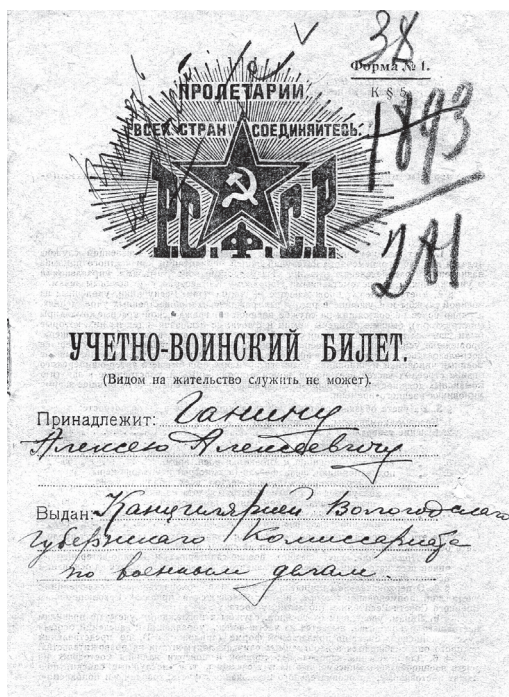 38
Форма № 1.
К § 5
1893
281
ПРОЛЕТАРИИ
ВСЕХ СТРАН СОЕДИНЯЙТЕСЬ.
Р.С.Ф.С.Р.
УЧЕТНО-ВОИНСКИЙ БИЛЕТ.
(Видом на жительство служить не может).
Принадлежит: Ганину
Алексею Алексеевичу
Выдан: Канцелярией Вологодскаго
Губернскаго Комиссариата
по военным делам.